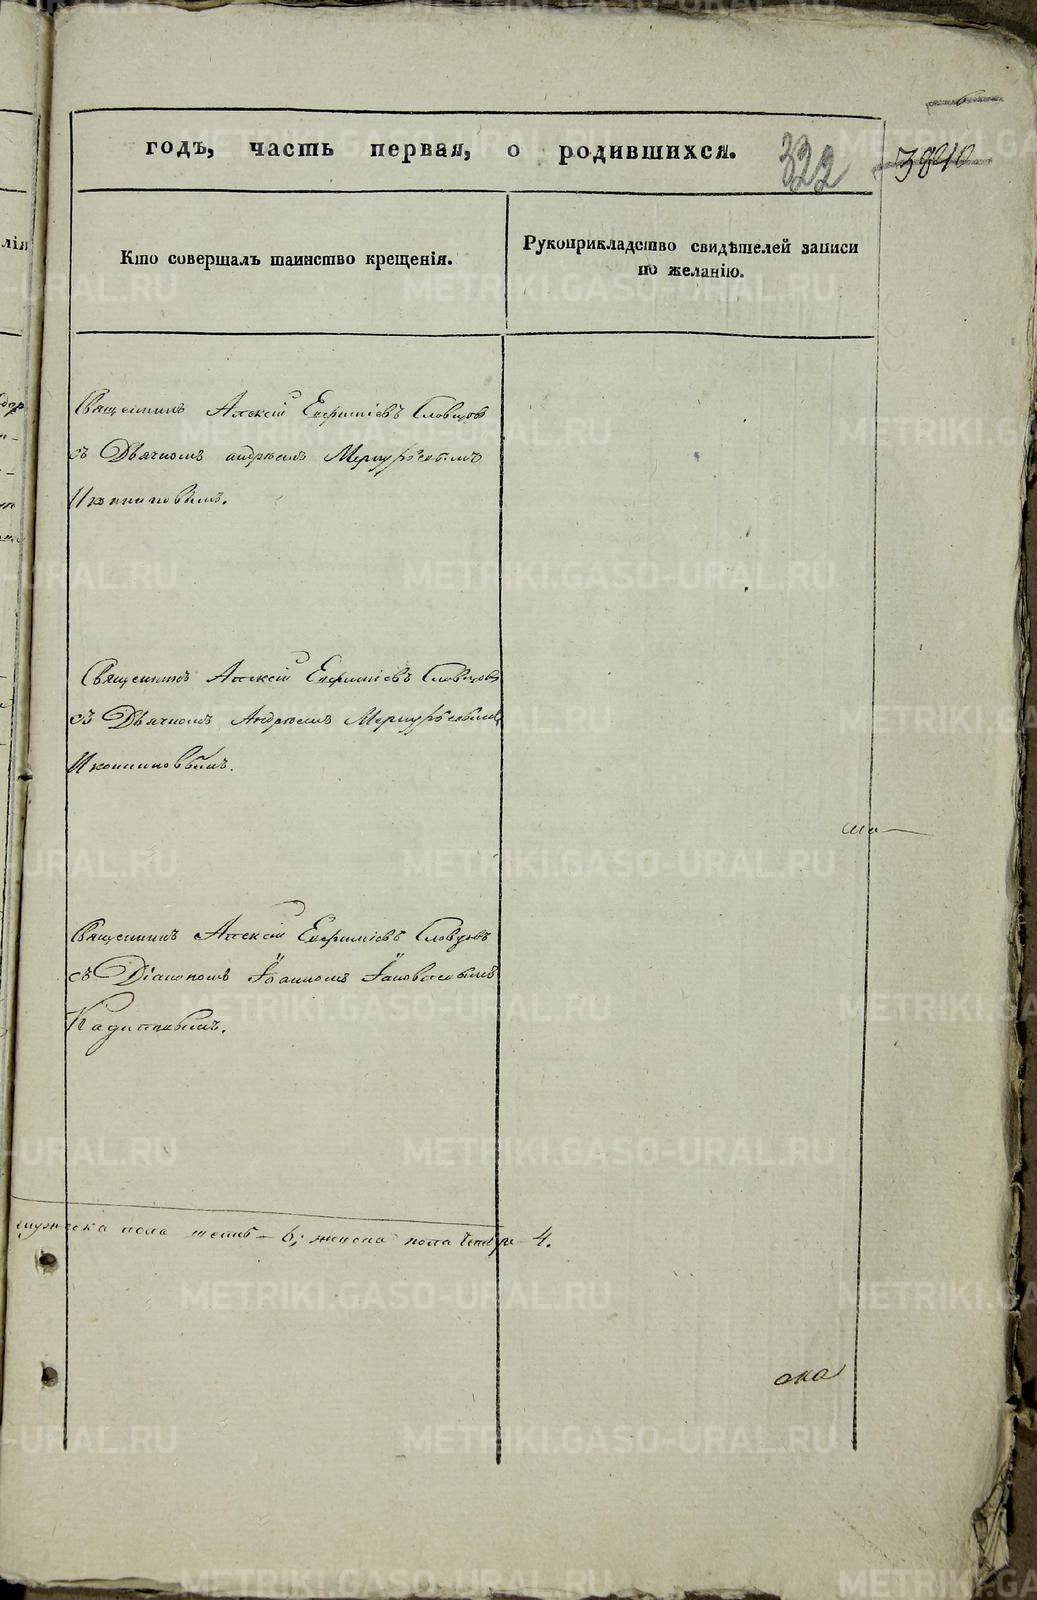 годъ, часть первая, о родившихся.
322
Кто совершалъ таинство крещенія.
Рукоприкладство свидѣтелей записи
по желанію.
Священникъ Алексій Евфиміевъ Словцовъ
съ Дьячкомъ андреемъ Меркурьевымъ
Иконниковымъ.
Священникъ Алексій Евфиміевъ Словцовъ
съ Дьячкомъ Андреемъ Меркурьевымъ
Иконниковымъ.
Священникъ Алексій Евфиміевъ Словцовъ
съ Діакономъ Іоанномъ Іаковлевымъ
мужеска пола шесть – 6; женска пола четыре 4.
METRIKI.GASO-URAL.RU